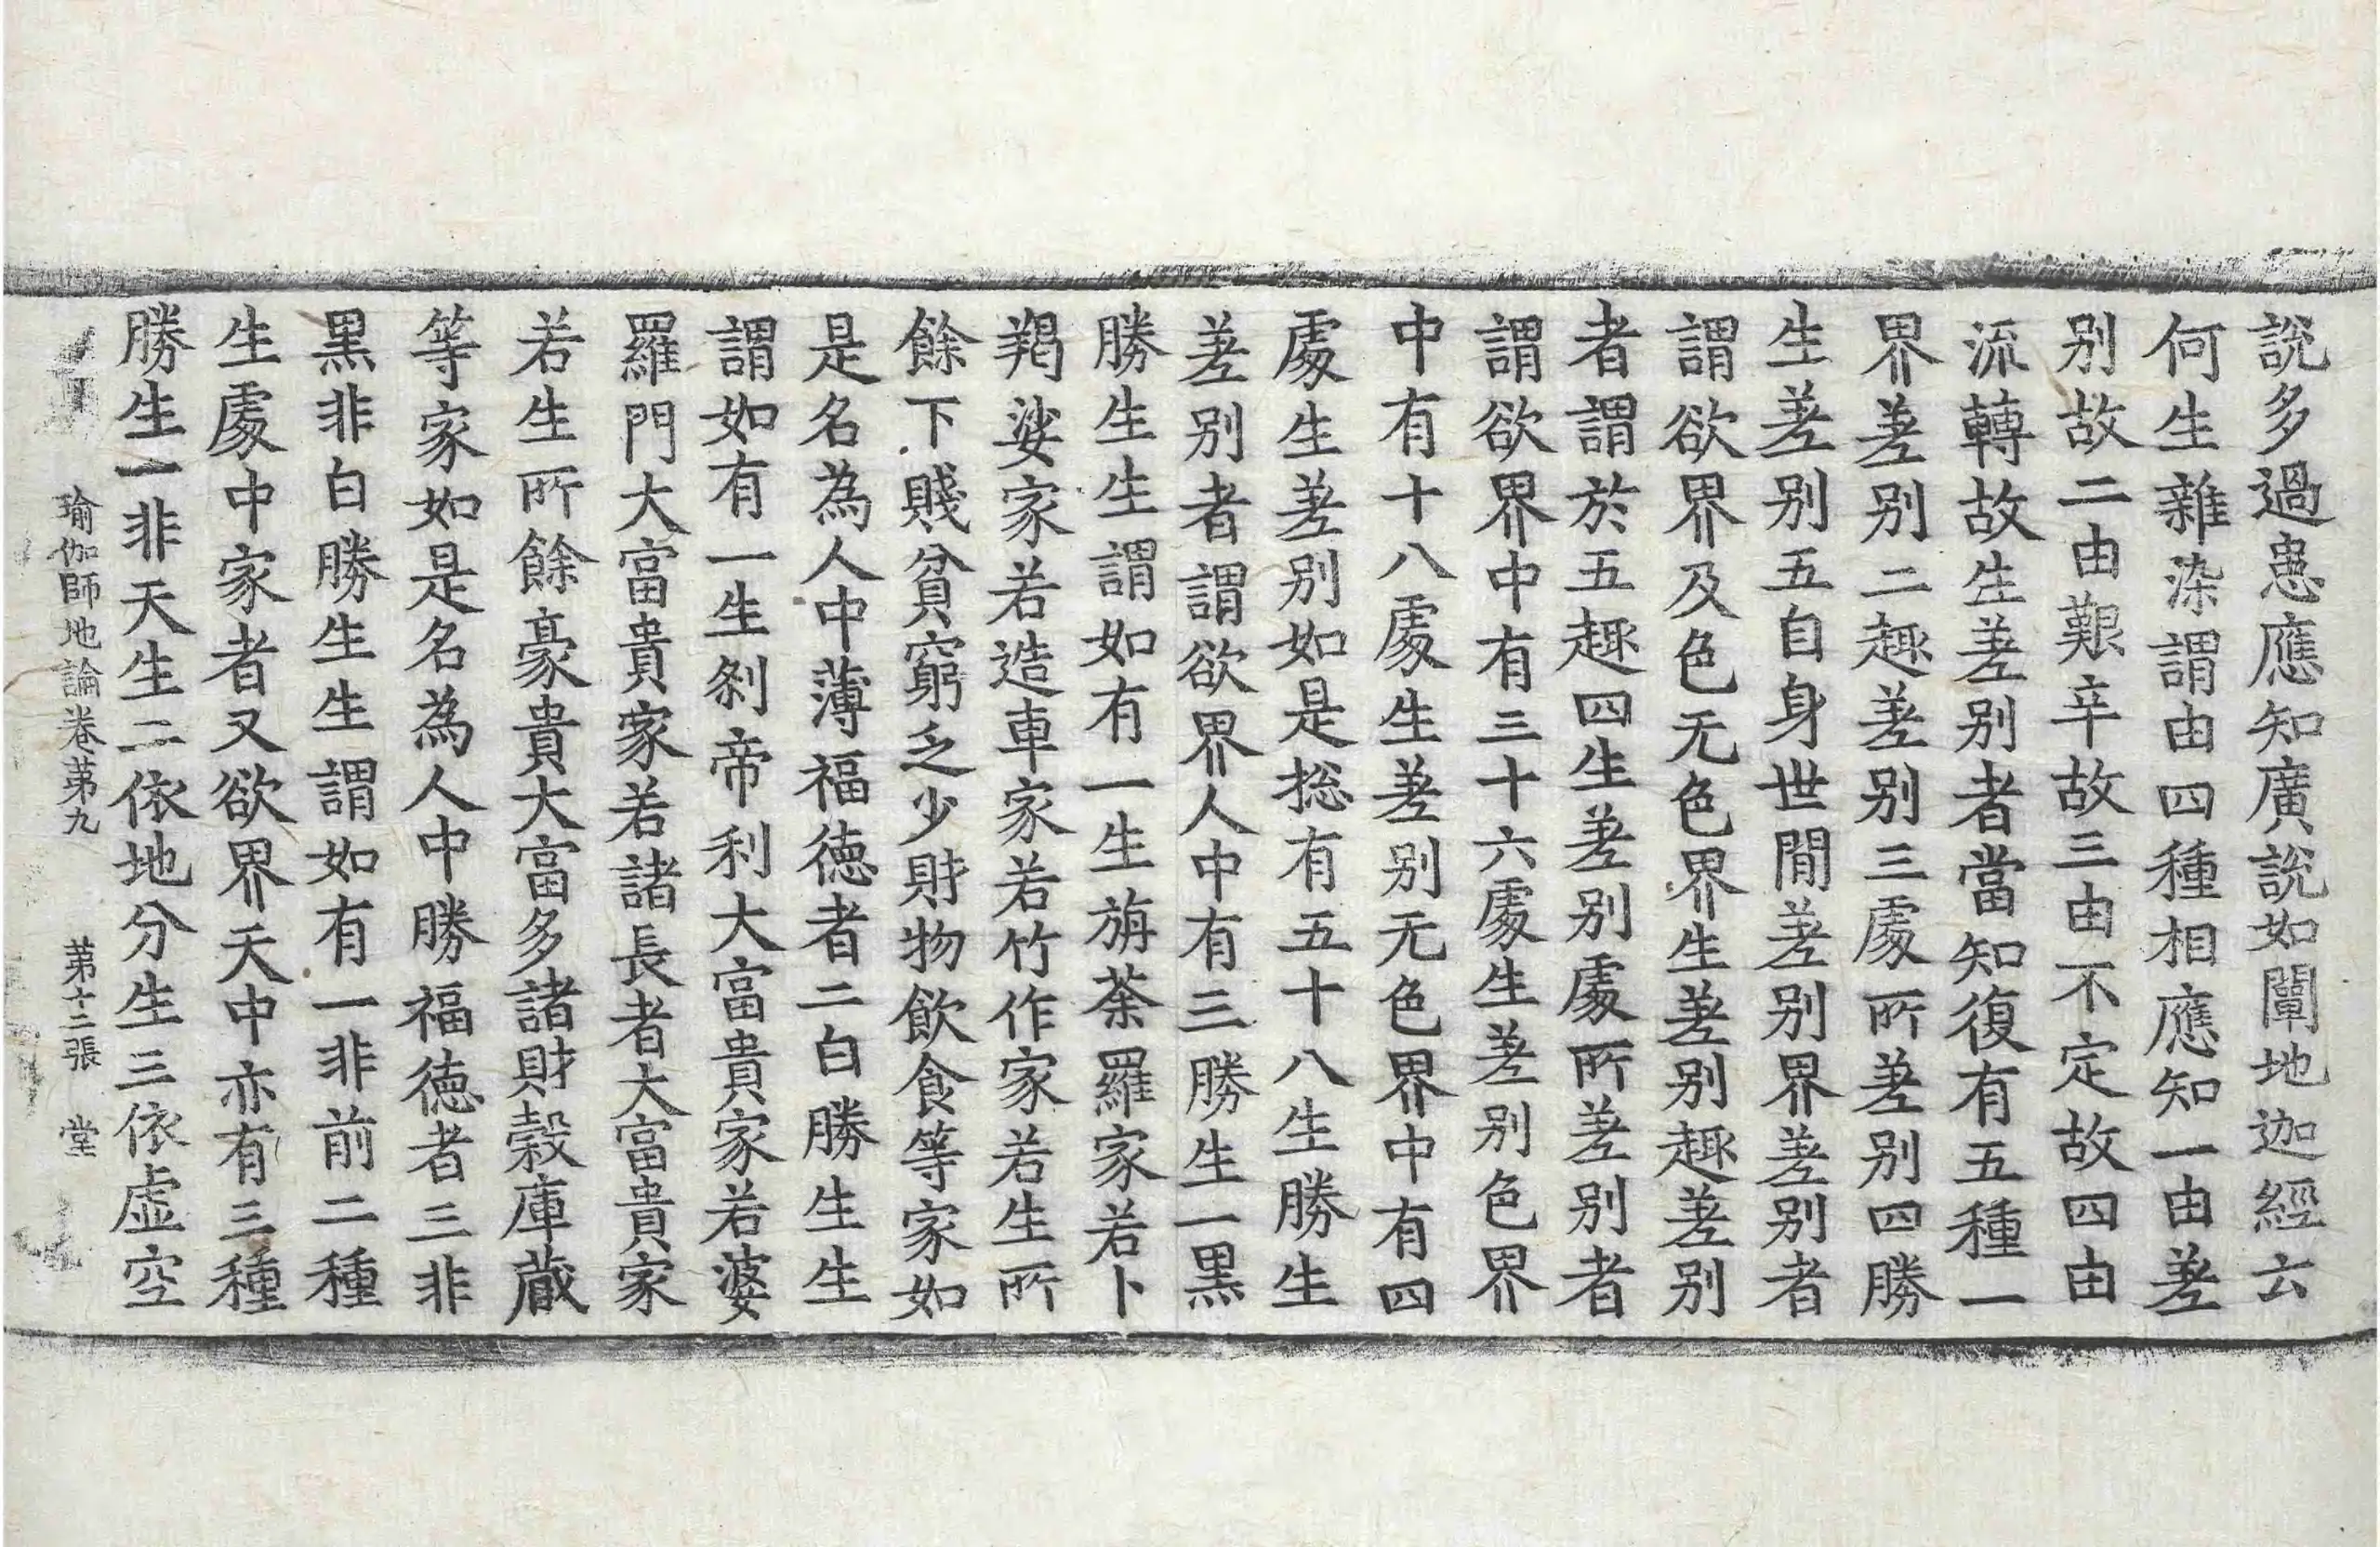 說多過患應知廣說如闡地迦經云
何生雜染謂由四種相應知一由差
别故二由艱辛故三由不定故四由
流轉故生差别者當知復有五種一
界差别二趣差别三處所差别四勝
生差别五自身世閒差别界差别者
謂欲界及色无色界生差别趣差别
者謂於五趣四生差别處所差别者
謂欲界中有三十六處生差别色界
中有十八處生差别无色界中有四
處生差别如是㧾有五十八生勝生
差别者謂欲界人中有三勝生一黑
勝生生謂如有一生旃荼羅家若卜
羯娑家若造車家若竹作家若生所
餘下賤貧窮乏少財物飲食等家如
是名為人中薄福德者二白勝生生
謂如有一生刹帝利大富貴家若婆
羅門大富貴家若諸長者大富貴家
若生所餘豪貴大富多諸財穀庫藏
等家如是名為人中勝福德者三非
黑非白勝生生謂如有一非前二種
生處中家者又欲界天中亦有三種
勝生一非天生二依地分生三依虛空
瑜伽師地論卷第九 第十二張 堂